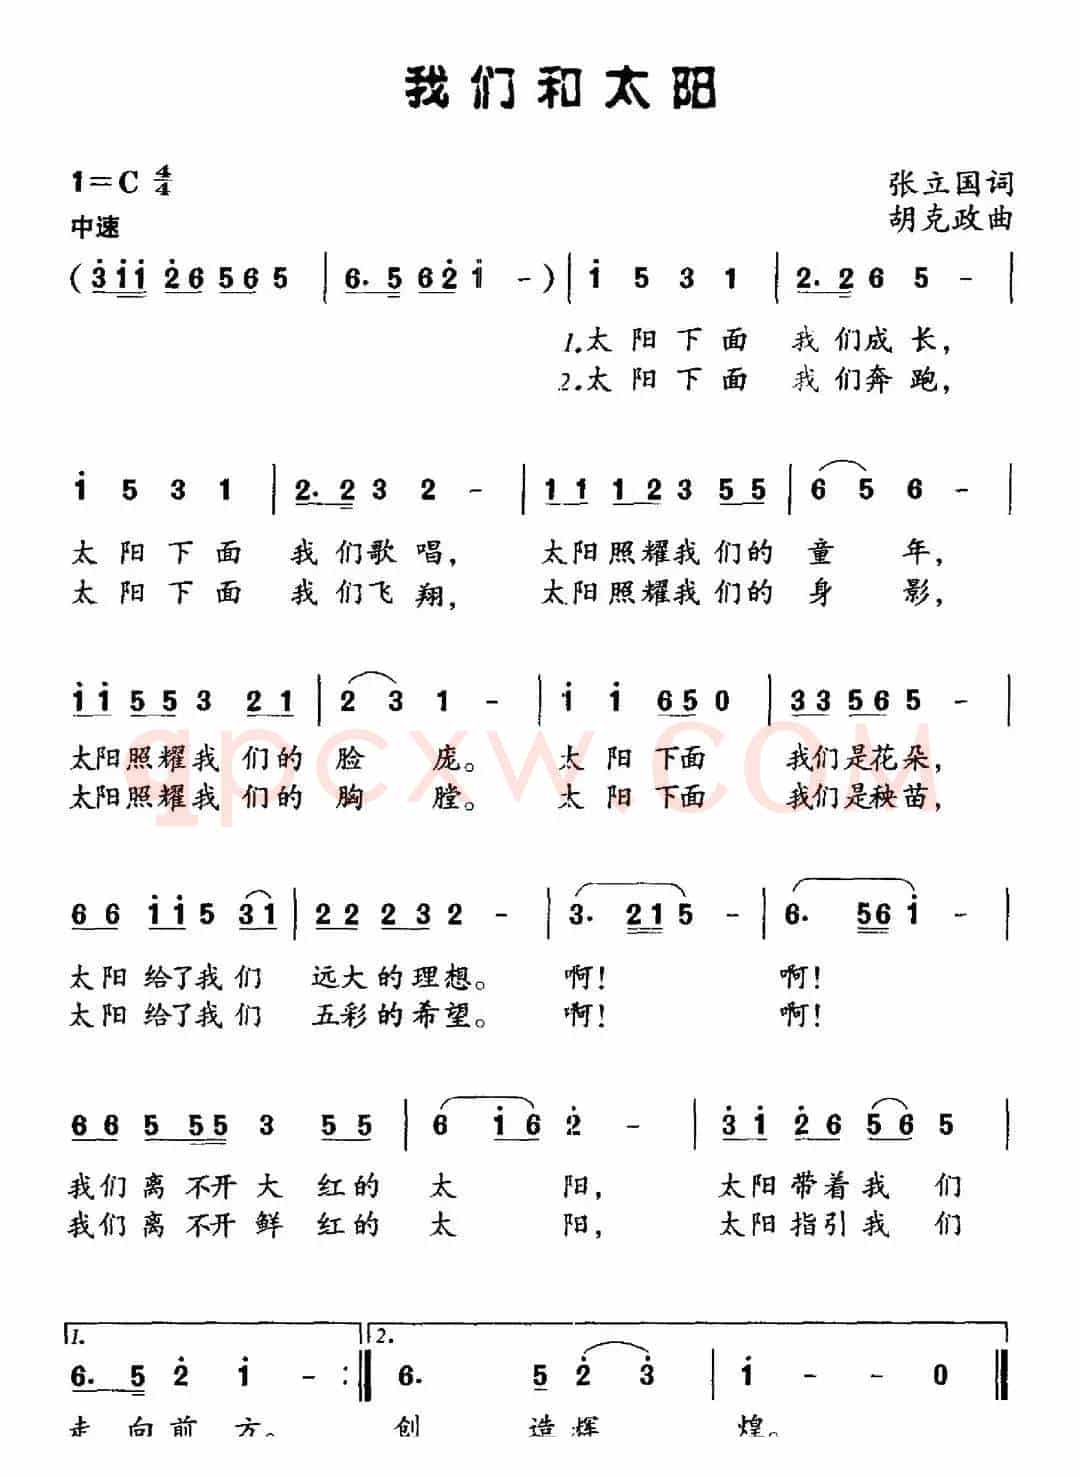 我们和太阳
1=C 4/4
张立国词
中速
胡克政曲
(3̇ 1̇1̇ 2̇6 565 | 6. 5 562̇ 1̇ -) | 1̇ 5 3 1 | 2. 2 6 5 - |
1.太阳下面 我们成长,
2.太阳下面 我们奔跑,
1̇ 5 3 1 | 2. 2 3 2 - | 1 1 1 2 3 5 5 | 6 5 6 - |
太阳下面 我们歌唱, 太阳照耀我们的童年,
太阳下面 我们飞翔, 太阳照耀我们的身影,
1̇ 1̇ 5 5 3 2 1 | 2 3 1 - | 1̇ 1̇ 65 0 | 33 565 - |
太阳照耀我们的脸庞。 太阳下面 我们是花朵,
太阳照耀我们的胸膛。 太阳下面 我们是秧苗,
6 6 1̇ 1̇ 5 31 | 2 2 2 3 2 - | 3. 21 5 - | 6. 56 1̇ - |
太阳给了我们 远大的理想。 啊! 啊!
太阳给了我们 五彩的希望。 啊! 啊!
6 6 5 55 3 5 5 | 6 1̇ 6 2̇ - | 3̇ 1̇ 2̇ 6 5 6 5 |
我们离不开大红的太阳, 太阳带着我们
我们离不开鲜红的太阳, 太阳指引我们
1. 2.
6. 5 2̇ 1̇ - :‖ 6. 5 2̇ 3̇ | 1̇ - - 0 ‖
走向前方。 创造辉煌。
qpcxw.COM